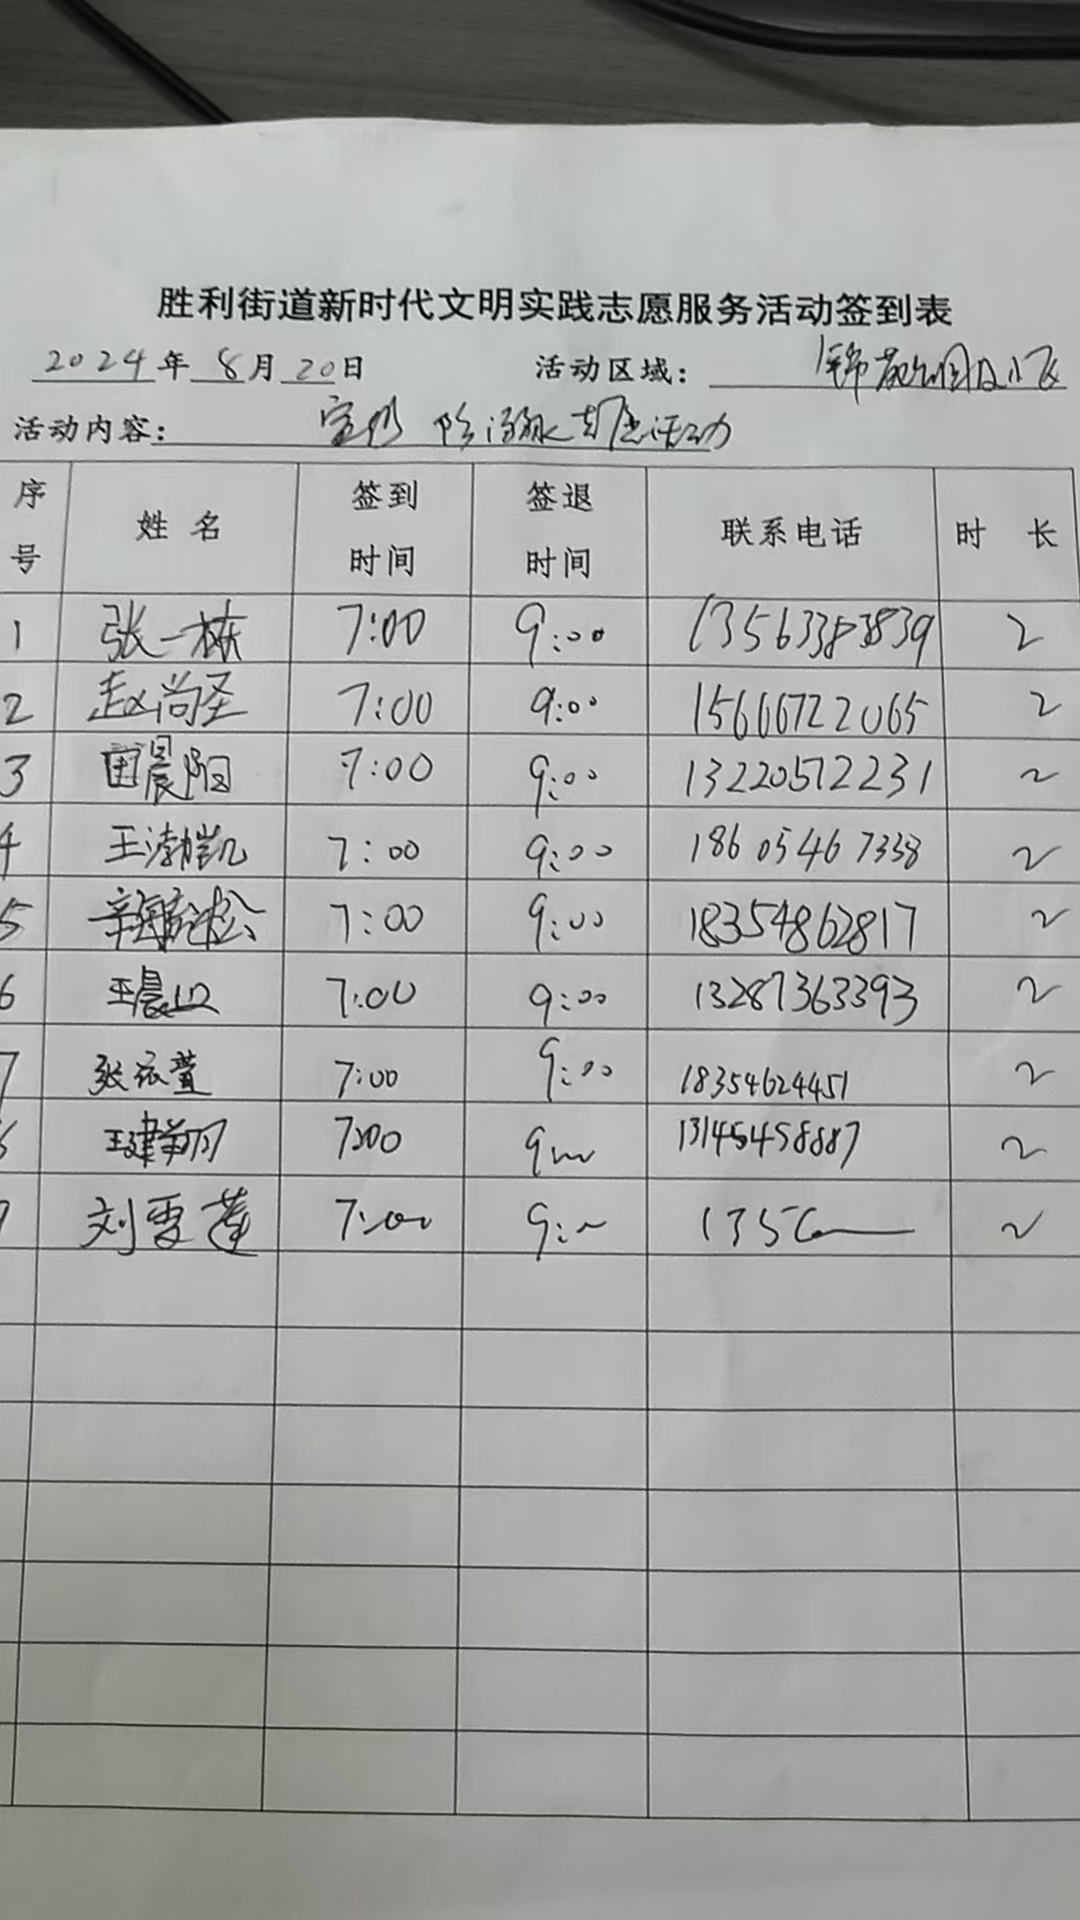 胜利街道新时代文明实践志愿服务活动签到表
2024年 8月 20日 活动区域：
活动内容： 防溺水志愿活动
序号 姓名 签到时间 签退时间 联系电话 时长
1 张一栋 7:00 9:00 13563383839 2
2 赵尚圣 7:00 9:00 15666722065 2
3 田晨阳 7:00 9:00 13220512231 2
4 王渤凯 7:00 9:00 18605467338 2
5 7:00 9:00 18354862817 2
6 王晨 7:00 9:00 13287363393 2
7 张依萱 7:00 9:00 18354624451 2
8 王建翔 7:00 9:00 13145458887 2
9 刘雪莲 7:00 9:00 1356 2